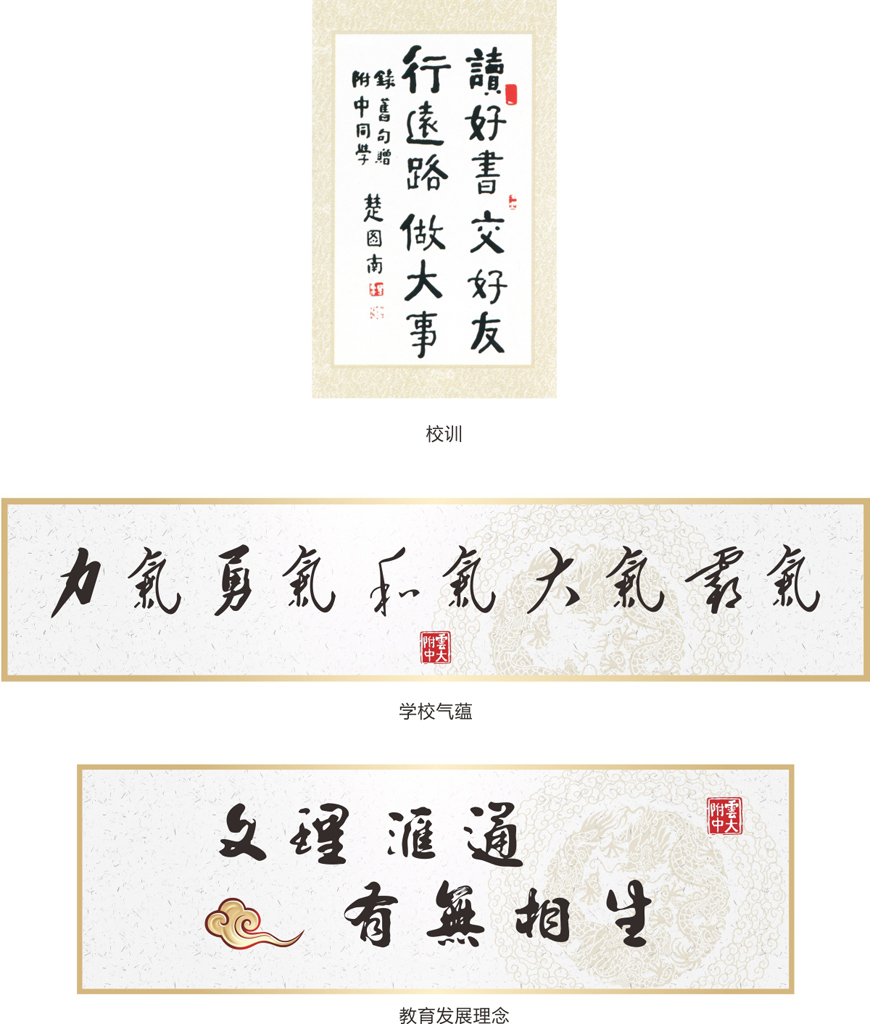 讀好書交好友
行遠路做大事
錄舊句贈
附中同學
楚图南
校训
力氣勇氣和氣大氣霸氣
雲大
附中
学校气蕴
雲大
附中
文理滙通
有無相生
教育发展理念